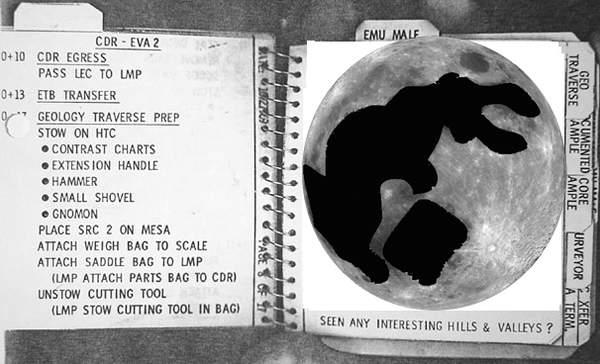 CDR - EVA 2
0+10 CDR EGRESS
PASS LEC TO LMP
0+13 ETB TRANSFER
GEOLOGY TRAVERSE PREP
STOW ON HTC
● CONTRAST CHARTS
● EXTENSION HANDLE
● HAMMER
● SMALL SHOVEL
● GNOMON
PLACE SRC 2 ON MESA
ATTACH WEIGH BAG TO SCALE
ATTACH SADDLE BAG TO LMP
(LMP ATTACH PARTS BAG TO CDR)
UNSTOW CUTTING TOOL
(LMP STOW CUTTING TOOL IN BAG)
EMU MALF
SEEN ANY INTERESTING HILLS & VALLEYS ?
GEO
TRAVERSE
CUMENTED
AMPLE
CORE
AMPLE
URVEYOR
XFER
A TERM.